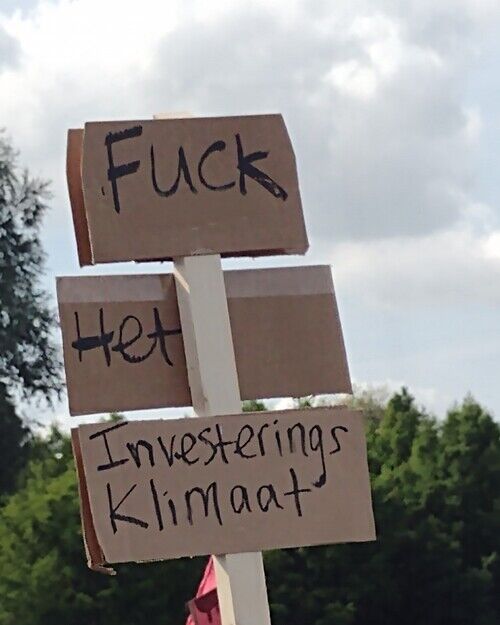 Fuck
Het
Investerings
Klimaat